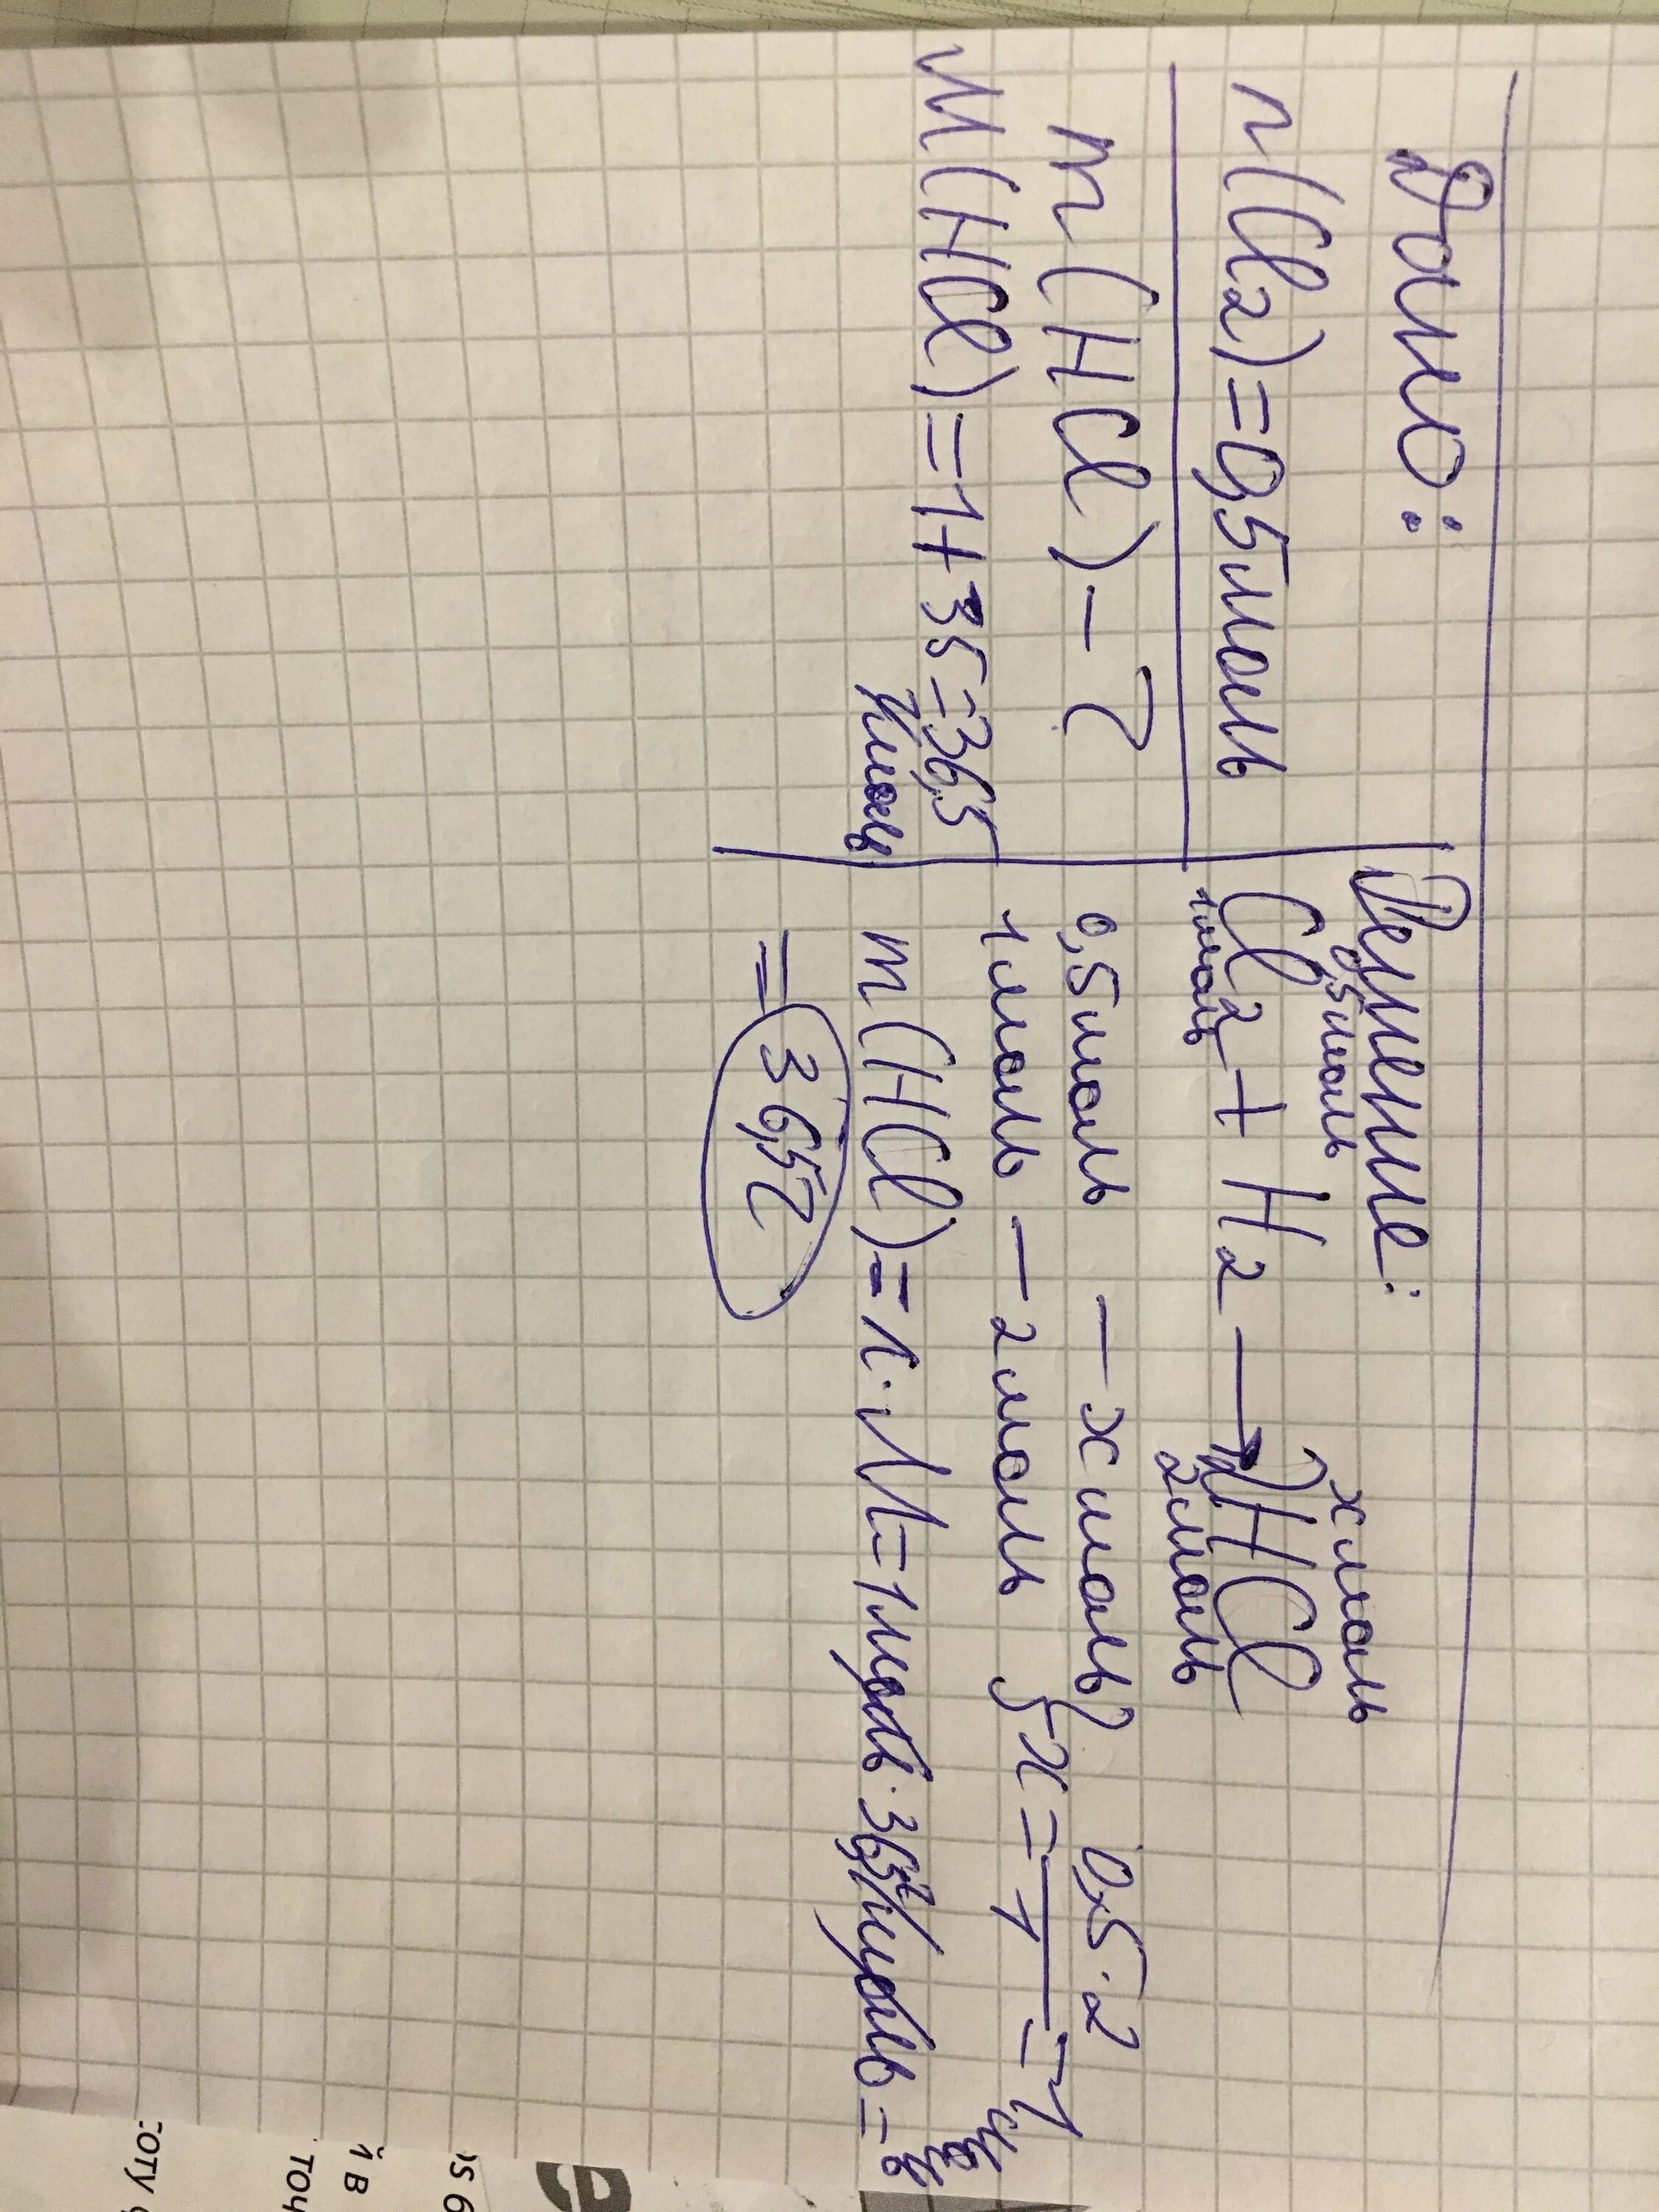 Дано:
n(Cl2)=0,5моль
m(HCl)-?
M(HCl)=1+35=36,5
г/моль
Решение:
0,5моль х моль
Cl2+H2→2HCl
1моль 2моль
0,5моль — х моль
1моль — 2моль } x= 0,5·2/1=1моль
m(HCl)=n·M=1моль·36,5г/моль=
=36,5г